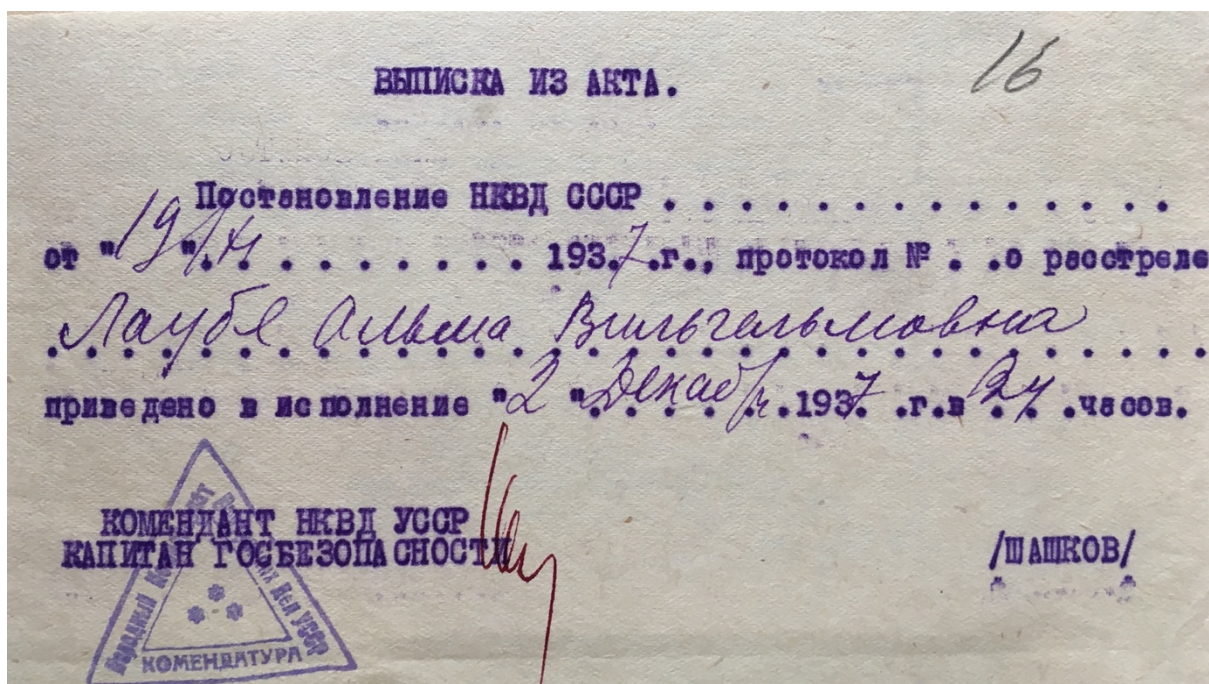 16
ВЫПИСКА ИЗ АКТА.
Постановление НКВД СССР . . . . . . . . . . . . . . .
от "19"/XI . . . . . . . . 1937.г., протокол № . .о расстреле
Лаубе Альма Вильгельмовна
приведено в исполнение "2" Декабр 1937 .г.в 24 .часов.
КОМЕНДАНТ НКВД УССР
КАПИТАН ГОСБЕЗОПАСНОСТИ
/ШАШКОВ/
Народный Комиссариат Внутренних Дел УССР
КОМЕНДАТУРА